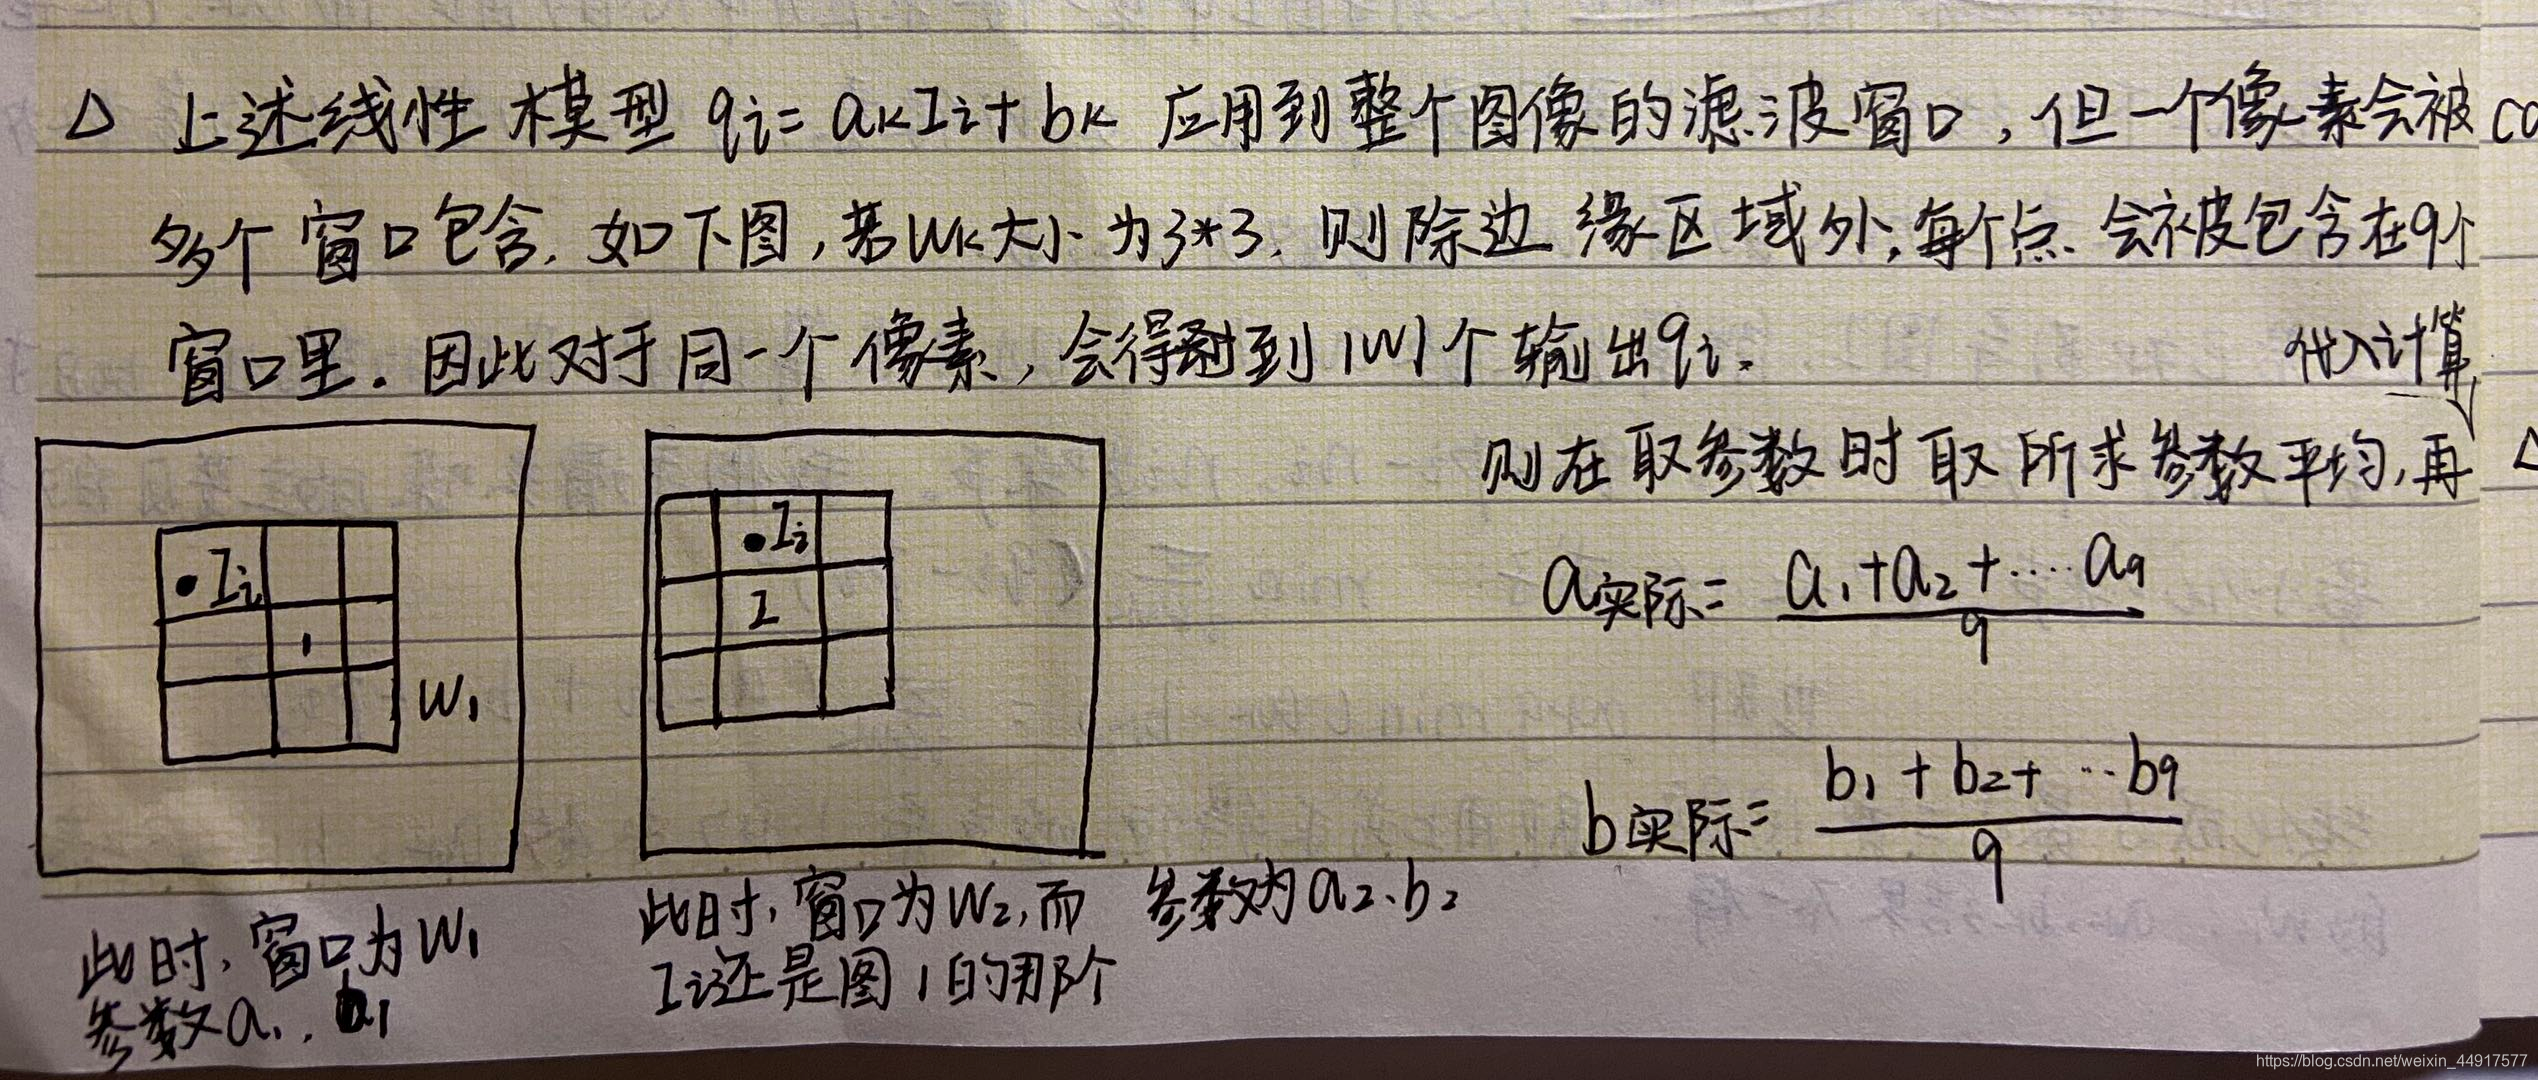 △ 上述线性模型 qi= aKIi+ bK 应用到整个图像的滤波窗口，但一个像素会被
多个窗口包含. 如下图，若WK大小为3*3. 则除边缘区域外，每个点会被包含在9个
窗口里. 因此对于同一个像素，会得到|W|个输出qi.
代入计算
则在取参数时取所求参数平均，再
Ii
1
W1
Ii
2
a实际= a1+a2+....a9
9
b实际= b1+b2+…b9
9
此时，窗口为W1
参数a1. b1
此时，窗口为W2，而 参数为a2、b2
Ii还是图1的那个
https://blog.csdn.net/weixin_44917577